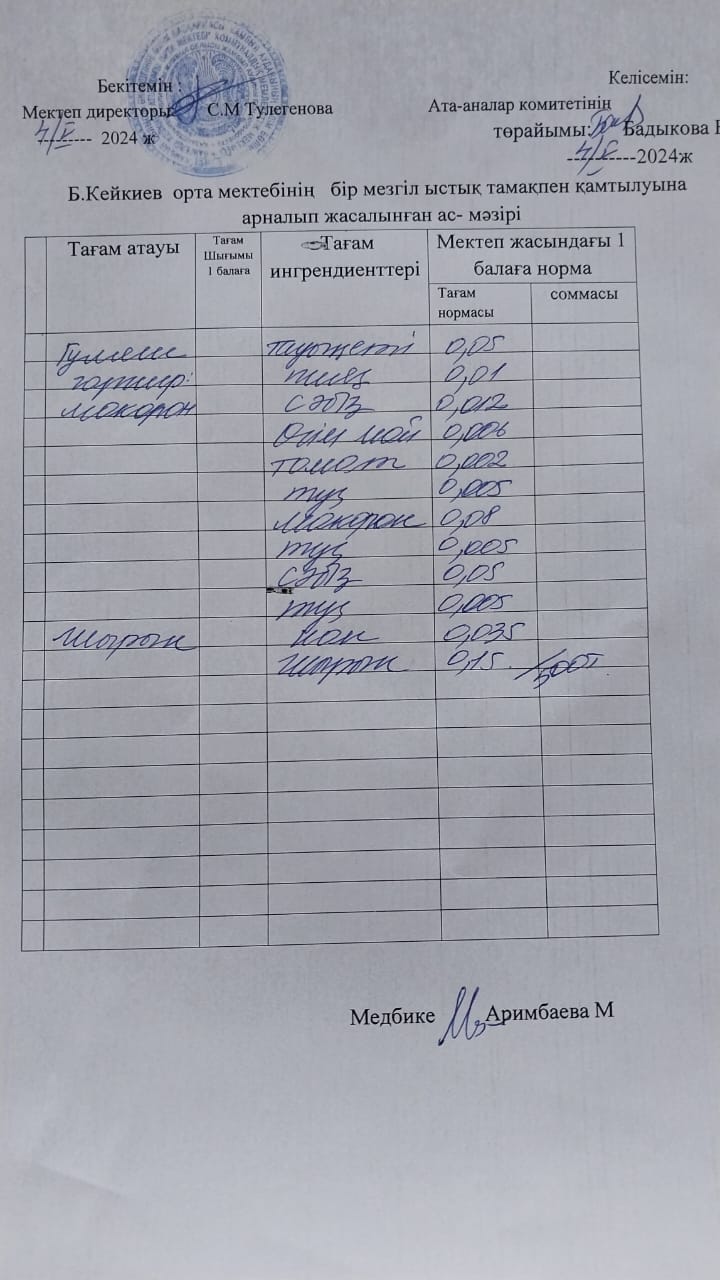 Бекітемін :
Мектеп директоры: С.М Тулегенова
4/X ------- 2024 ж
Келісемін:
Ата-аналар комитетінің
төрайымы: Бадыкова
4/X ------2024ж
Б.Кейкиев орта мектебінің бір мезгіл ыстық тамақпен қамтылуына
арналып жасалынған ас- мәзірі
Тағам атауы
Тағам
Шығымы
1 балаға
Тағам
ингрендиенттері
Мектеп жасындағы 1
балаға норма
Тағам
нормасы
соммасы
Гуляш тауық еті 0,05
гарнир: пияз 0,01
макорон сәбіз 0,012
Өсім май 0,006
томат 0,002
тұз 0,005
Макорон 0,08
тұз 0,005
сәбіз 0,05
тұз 0,005
Шырын нан 0,035
шырын 0,15
Медбике Аримбаева М